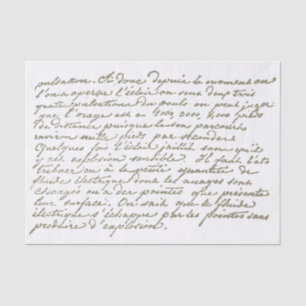 pulsation. Si donc depuis le moment ou
l'on a aperçu l'éclair on sent deux trois
quatre pulsations du pouls on peut juger
que l'orage est a 2000, 3000, 4000 pieds
de distance puisque le son parcourt
environ mille pieds par seconde
Quelques fois l'éclair jaillit sans qu'il
y ait explosion sensible. Il faut l'at
tribuer ou a la petite quantité de
fluide électrique dont les nuages sont
chargés ou a des pointes que présente
leur surface. On sait que le fluide
électrique s'échappe par les pointes sans
produire d'explosion.